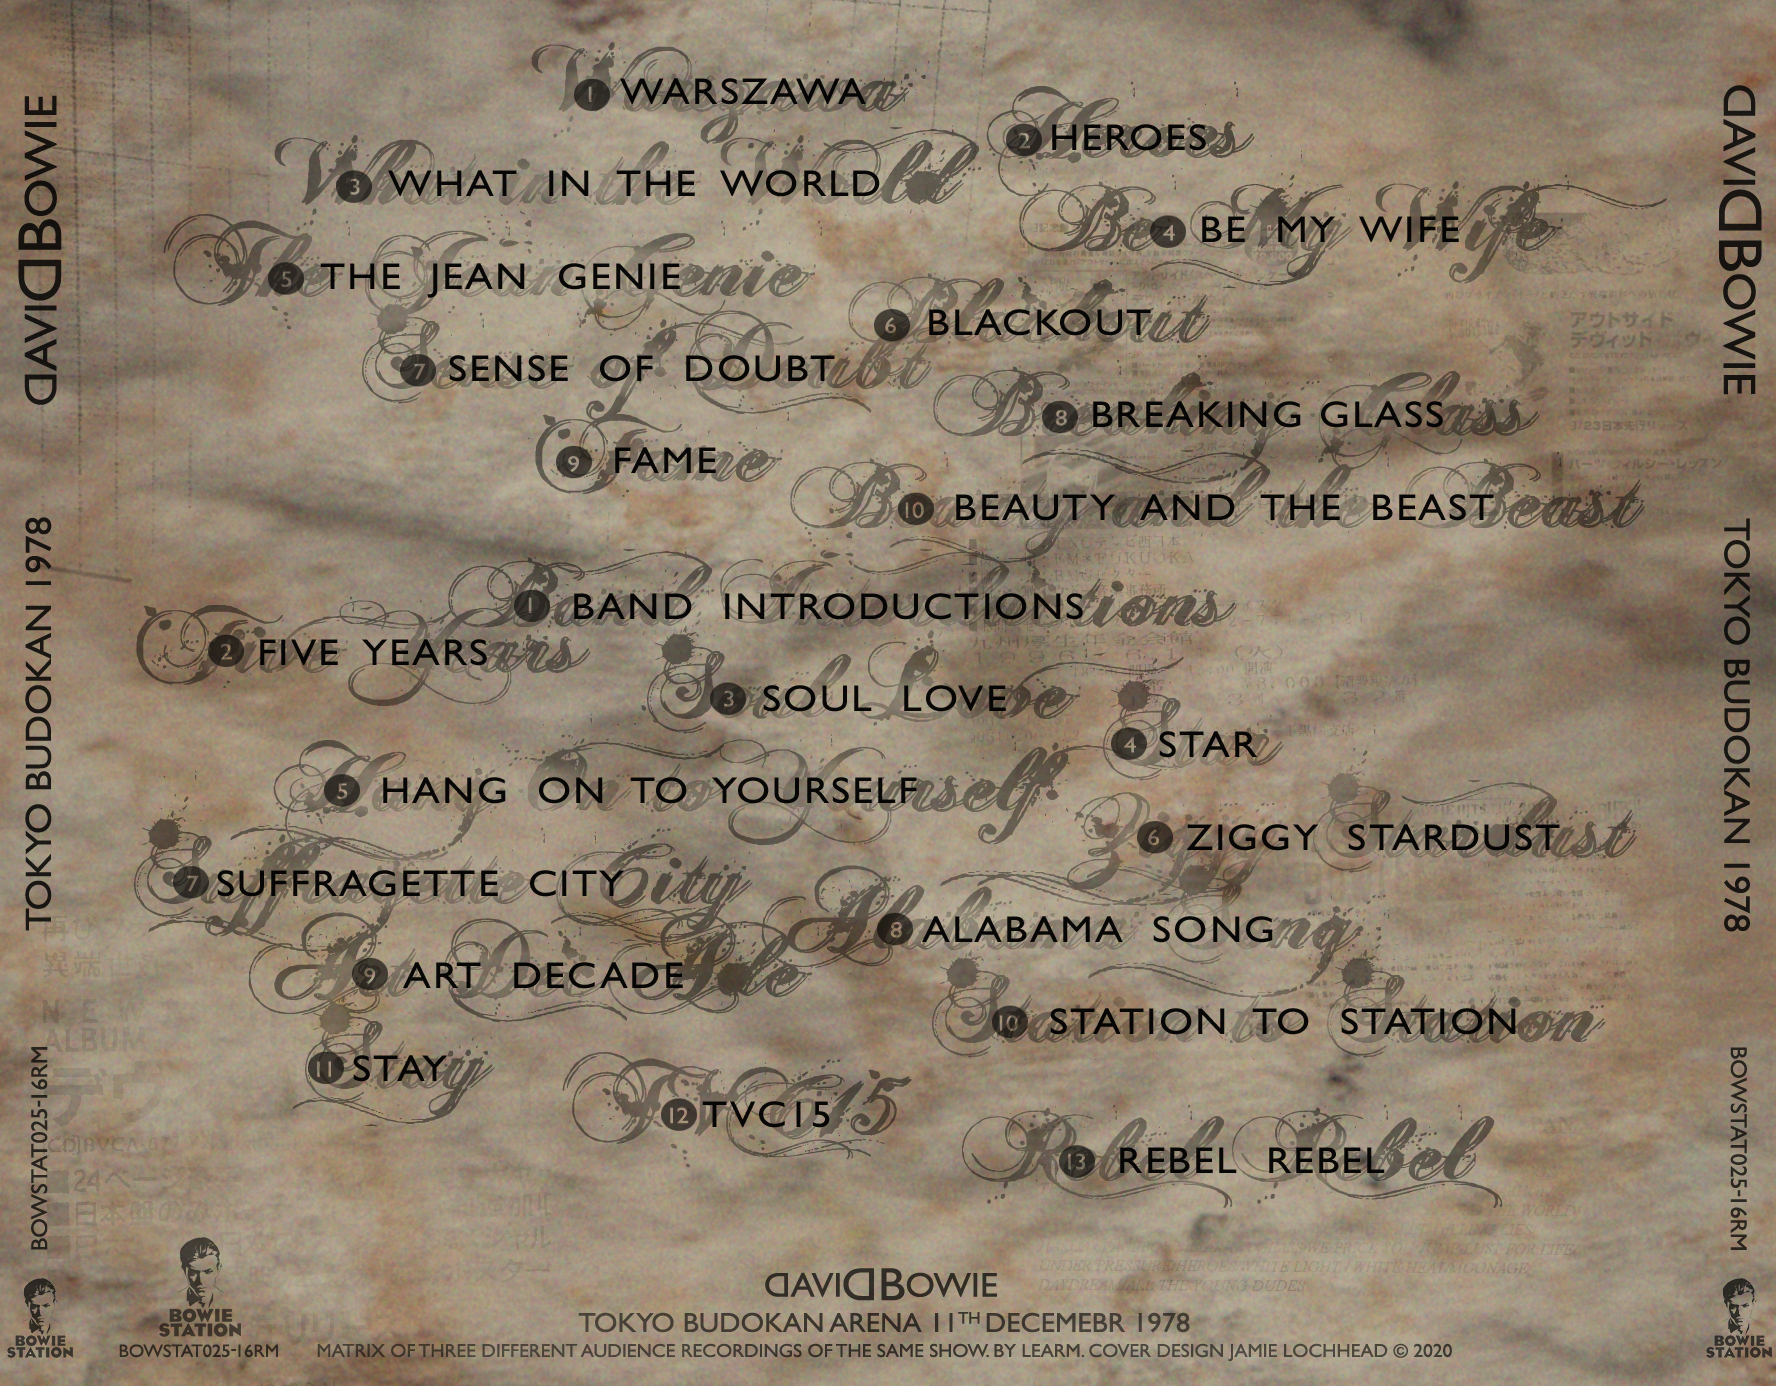 1 WARSZAWA
2 HEROES
3 WHAT IN THE WORLD
4 BE MY WIFE
5 THE JEAN GENIE
6 BLACKOUT
7 SENSE OF DOUBT
8 BREAKING GLASS
9 FAME
10 BEAUTY AND THE BEAST
1 BAND INTRODUCTIONS
2 FIVE YEARS
3 SOUL LOVE
4 STAR
5 HANG ON TO YOURSELF
6 ZIGGY STARDUST
7 SUFFRAGETTE CITY
8 ALABAMA SONG
9 ART DECADE
10 STATION TO STATION
11 STAY
12 TVC15
13 REBEL REBEL
DAVID BOWIE
TOKYO BUDOKAN ARENA 11TH DECEMEBR 1978
MATRIX OF THREE DIFFERENT AUDIENCE RECORDINGS OF THE SAME SHOW. BY LEARM. COVER DESIGN JAMIE LOCHHEAD © 2020
BOWIE
STATION
BOWSTAT025-16RM
DAVID BOWIE
TOKYO BUDOKAN 1978
BOWSTAT025-16RM
BOWIE
STATION
DAVID BOWIE
TOKYO BUDOKAN 1978
BOWSTAT025-16RM
BOWIE
STATION
アウトサイド
NEW
ALBUM